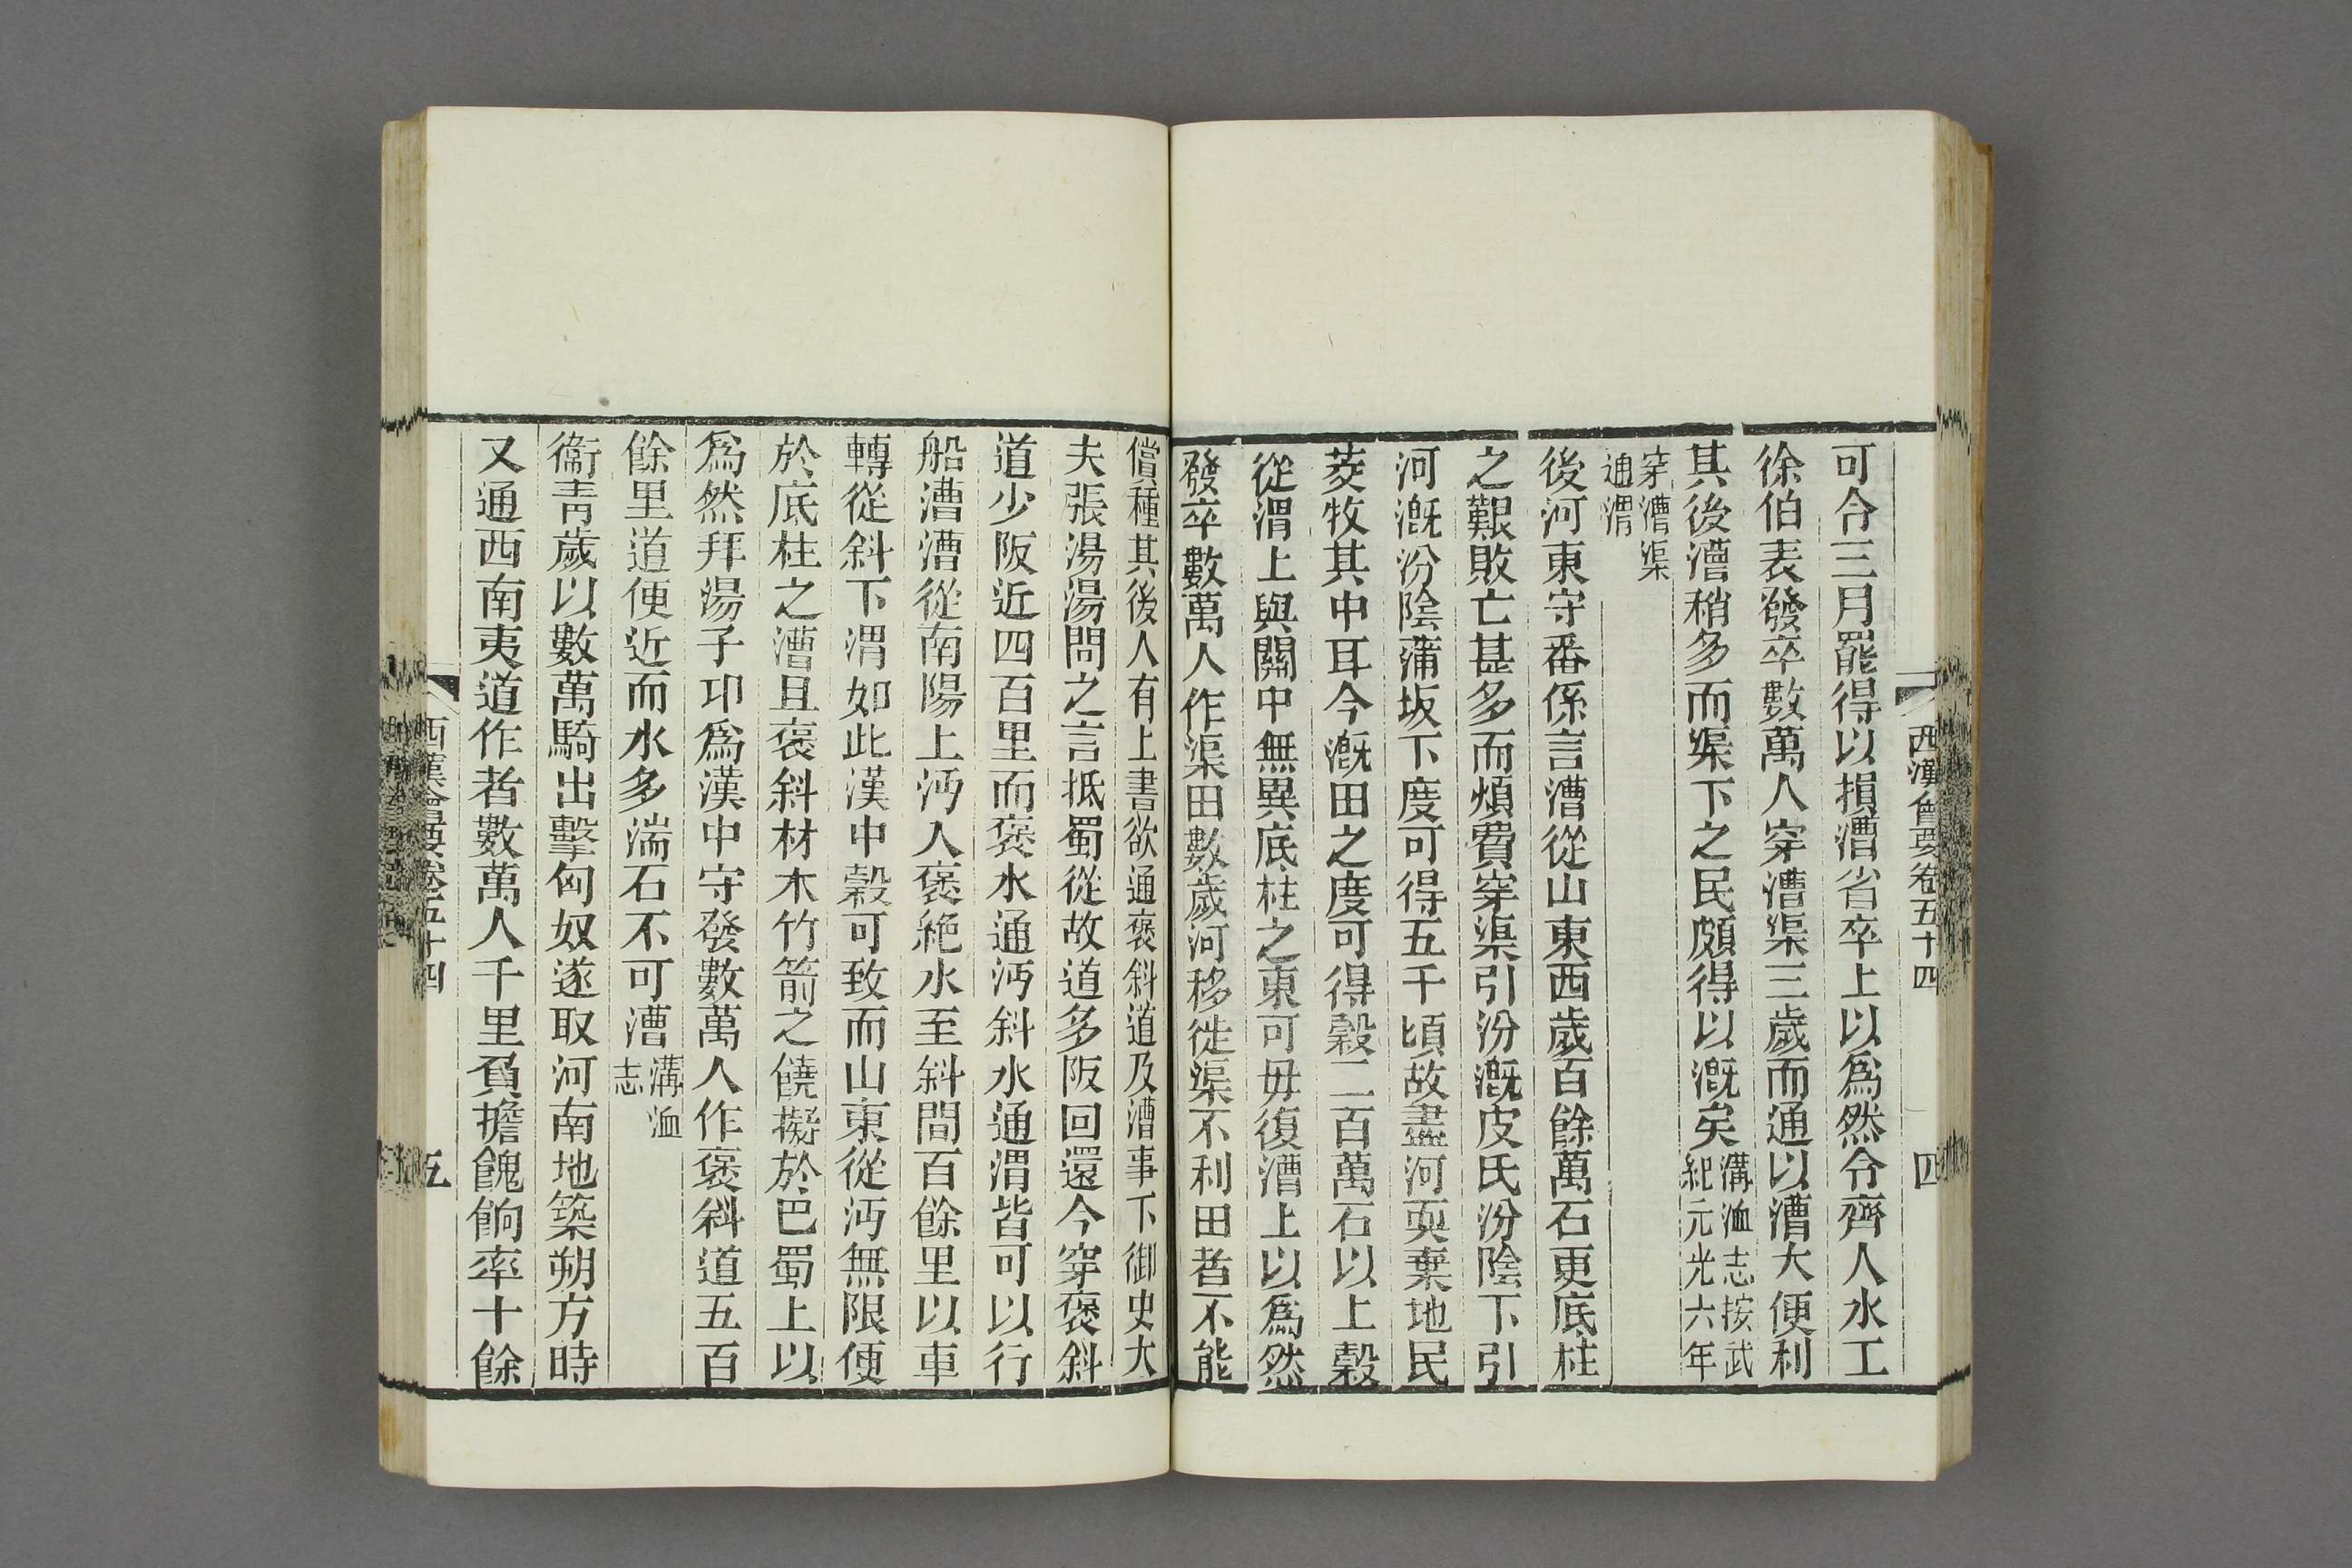 西漢會要卷五十四
四
可令三月罷得以損漕省卒上以爲然令齊人水工
徐伯表發卒數萬人穿漕渠三歲而通以漕大便利
其後漕稍多而渠下之民頗得以溉矣溝洫志按武
紀元光六年
穿漕渠
通渭
後河東守番係言漕從山東西歲百餘萬石更底柱
之艱敗亡甚多而煩費穿渠引汾溉皮氏汾陰下引
河溉汾陰蒲坂下度可得五千頃故盡河堧棄地民
茭牧其中耳今溉田之度可得穀二百萬石以上穀
從渭上與關中無異底柱之東可毋復漕上以爲然
發卒數萬人作渠田數歲河移徙渠不利田者不能
償種其後人有上書欲通褒斜道及漕事下御史大
夫張湯湯問之言抵蜀從故道多阪回遠今穿褒斜
道少阪近四百里而褒水通沔斜水通渭皆可以行
船漕漕從南陽上沔入褒絶水至斜間百餘里以車
轉從斜下渭如此漢中穀可致而山東從沔無限便
於底柱之漕且褒斜材木竹箭之饒擬於巴蜀上以
爲然拜湯子卬爲漢中守發數萬人作褒斜道五百
餘里道便近而水多湍石不可漕溝洫
志
衞靑歲以數萬騎出擊匈奴遂取河南地築朔方時
又通西南夷道作者數萬人千里負擔餽餉率十餘
西漢會要卷五十四
五